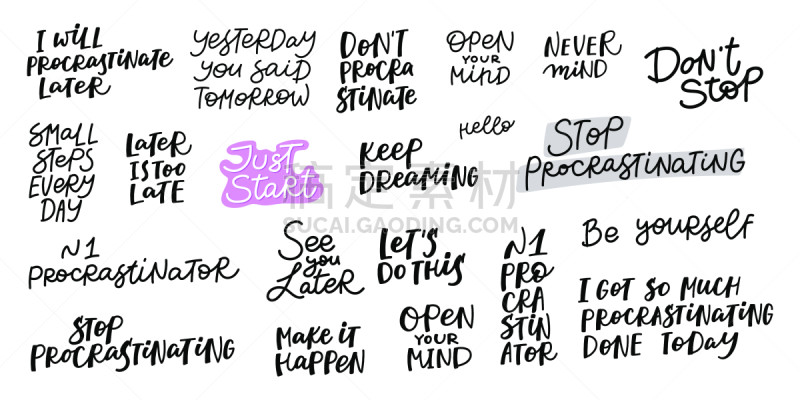 I WILL
PROCRASTINATE
LATER
YESTERDAY
YOU SAID
TOMORROW
DON'T
PROCRA
STINATE
OPEN
YOUR
MIND
NEVER
MIND
DON'T
STOP
SMALL
STEPS
EVERY
DAY
LATER
IS TOO
LATE
JUST
START
KEEP
DREAMING
Hello
STOP
PROCRASTINATING
搞定素材
SUCAI.GAODING.COM
N1
PROCRASTINATOR
See
you
Later
LET'S
DO THIS
N1
PRO
CRA
STIN
ATOR
Be yourself
STOP
PROCRASTINATING
MAKE IT
HAPPEN
OPEN
YOUR
MIND
I GOT SO MUCH
PROCRASTINATING
DONE TODAY